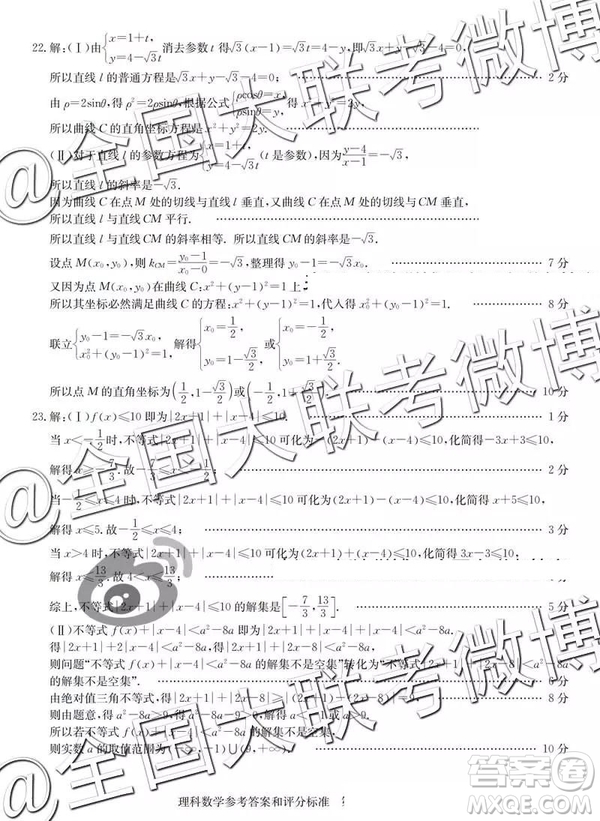 22.解:(Ⅰ)由{x=1+t, y=4-√3t 消去参数 t 得√3(x-1)=√3t=4-y,即√3x+y-√3-4=0,
所以直线 l 的普通方程是√3x+y-√3-4=0; 2分
由 ρ=2sinθ,得 ρ²=2ρsinθ,根据公式{ρcosθ=x, ρsinθ=y,
所以曲线 C 的直角坐标方程是 x²+y²=2y.
(Ⅱ)对于直线 l 的参数方程为{x=1+t, y=4-√3t (t 是参数),因为(y-4)/(x-1)=-√3,
所以直线 l 的斜率是-√3.
因为曲线 C 在点 M 处的切线与直线 l 垂直,又曲线 C 在点 M 处的切线与 CM 垂直,
所以直线 l 与直线 CM 平行.
所以直线 l 与直线 CM 的斜率相等. 所以直线 CM 的斜率为-√3.
设点 M(x₀,y₀),则 k_CM=(y₀-1)/(x₀-0)=-√3,整理得 y₀-1=-√3x₀. 7分
又因为点 M(x₀,y₀)在曲线 C:x²+(y-1)²=1 上,
所以其坐标必然满足曲线 C 的方程:x²+(y-1)²=1,代入得 x₀²+(y₀-1)²=1. 8分
联立{y₀-1=-√3x₀, x₀²+(y₀-1)²=1, 解得{x₀=1/2, y₀=1-√3/2 或{x₀=-1/2, y₀=1+√3/2.
所以点 M 的直角坐标为(1/2,1-√3/2)或(-1/2,1+√3/2). 10分
23.解:(Ⅰ)f(x)≤10 即为|2x+1|+|x-4|≤10. 1分
当 x<-1/2时,不等式|2x+1|+|x-4|≤10 可化为-(2x+1)-(x-4)≤10,化简得-3x+3≤10,
解得 x≥-7/3.故-7/3≤x<-1/2; 2分
当-1/2≤x≤4 时,不等式|2x+1|+|x-4|≤10 可化为(2x+1)-(x-4)≤10,化简得 x+5≤10,
解得 x≤5.故-1/2≤x≤4; 3分
当 x>4 时,不等式|2x+1|+|x-4|≤10 可化为(2x+1)+(x-4)≤10,化简得 3x-3≤10,
解得 x≤13/3.故 4<x≤13/3;
综上,不等式|2x+1|+|x-4|≤10 的解集是[-7/3,13/3]. 5分
(Ⅱ)不等式 f(x)+|x-4|<a²-8a 即为|2x+1|+|x-4|+|x-4|<a²-8a,
得|2x+1|+|2x-8|<a²-8a,
则问题“不等式 f(x)+|x-4|<a²-8a 的解集不是空集”转化为“不等式|2x+1|+|2x-8|<a²-8a
的解集不是空集”. 6分
由绝对值三角不等式,得|2x+1|+|2x-8|≥|(2x+1)-(2x-8)|=9. 8分
则由题意,得 a²-8a>9,得 a²-8a-9>0,解得 a<-1 或 a>9.
所以若不等式 f(x)+|x-4|<a²-8a 的解集不是空集,
则实数 a 的取值范围为(-∞,-1)∪(9,+∞). 10分
理科数学参考答案和评分标准
@全国大联考微博
@全国大联考微博
@全国大联考微博
答案圈